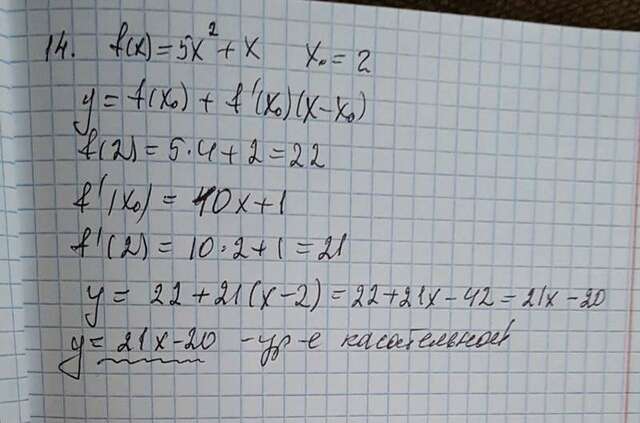 14. f(x) = 5x² + x x₀ = 2
y = f(x₀) + f'(x₀)(x – x₀)
f(2) = 5·4 + 2 = 22
f'(x₀) = 10x + 1
f'(2) = 10·2 + 1 = 21
y = 22 + 21(x – 2) = 22 + 21x – 42 = 21x – 20
y = 21x – 20 – ур-е касательной